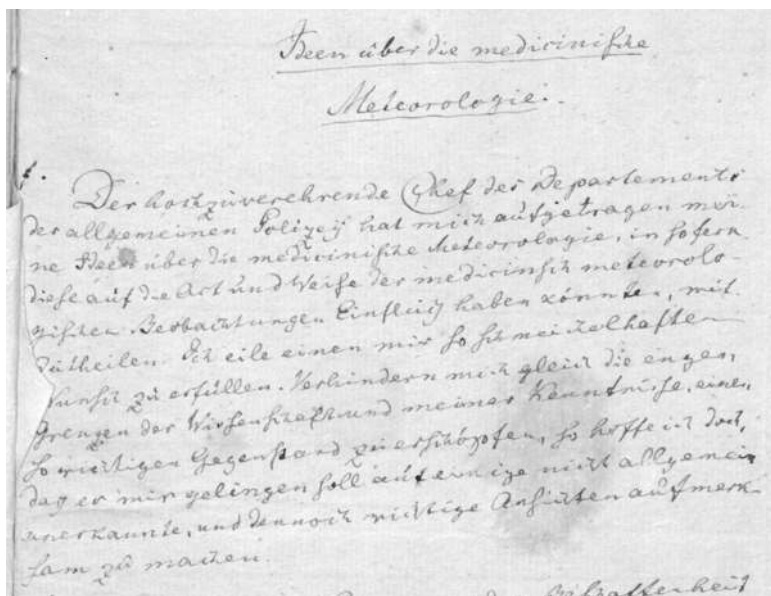 Ideen über die medicinische
Meteorologie.
1.
Der hochzuverehrende Chef des Departements
der allgemeinen Polizey hat mich aufgetragen mei-
ne Ideen über die medicinische Meteorologie, in sofern
diese auf die Art und Weise der medicinsch meteorolo-
gischen Beobachtungen Einfluß haben könnten, mit-
zutheilen. Ich eile einen mir so schmeichelhaften
Wunsch zu erfüllen. Verhindern mich gleich die engen
Grenzen der Wissenschaft und meiner Kenntnisse, einen
so wichtigen Gegenstand zu erschöpfen, so hoffe ich doch,
daß er mir gelingen soll auf einige nicht allgemein
anerkannte, und dennoch wichtige Ansichten aufmerk-
sam zu machen.